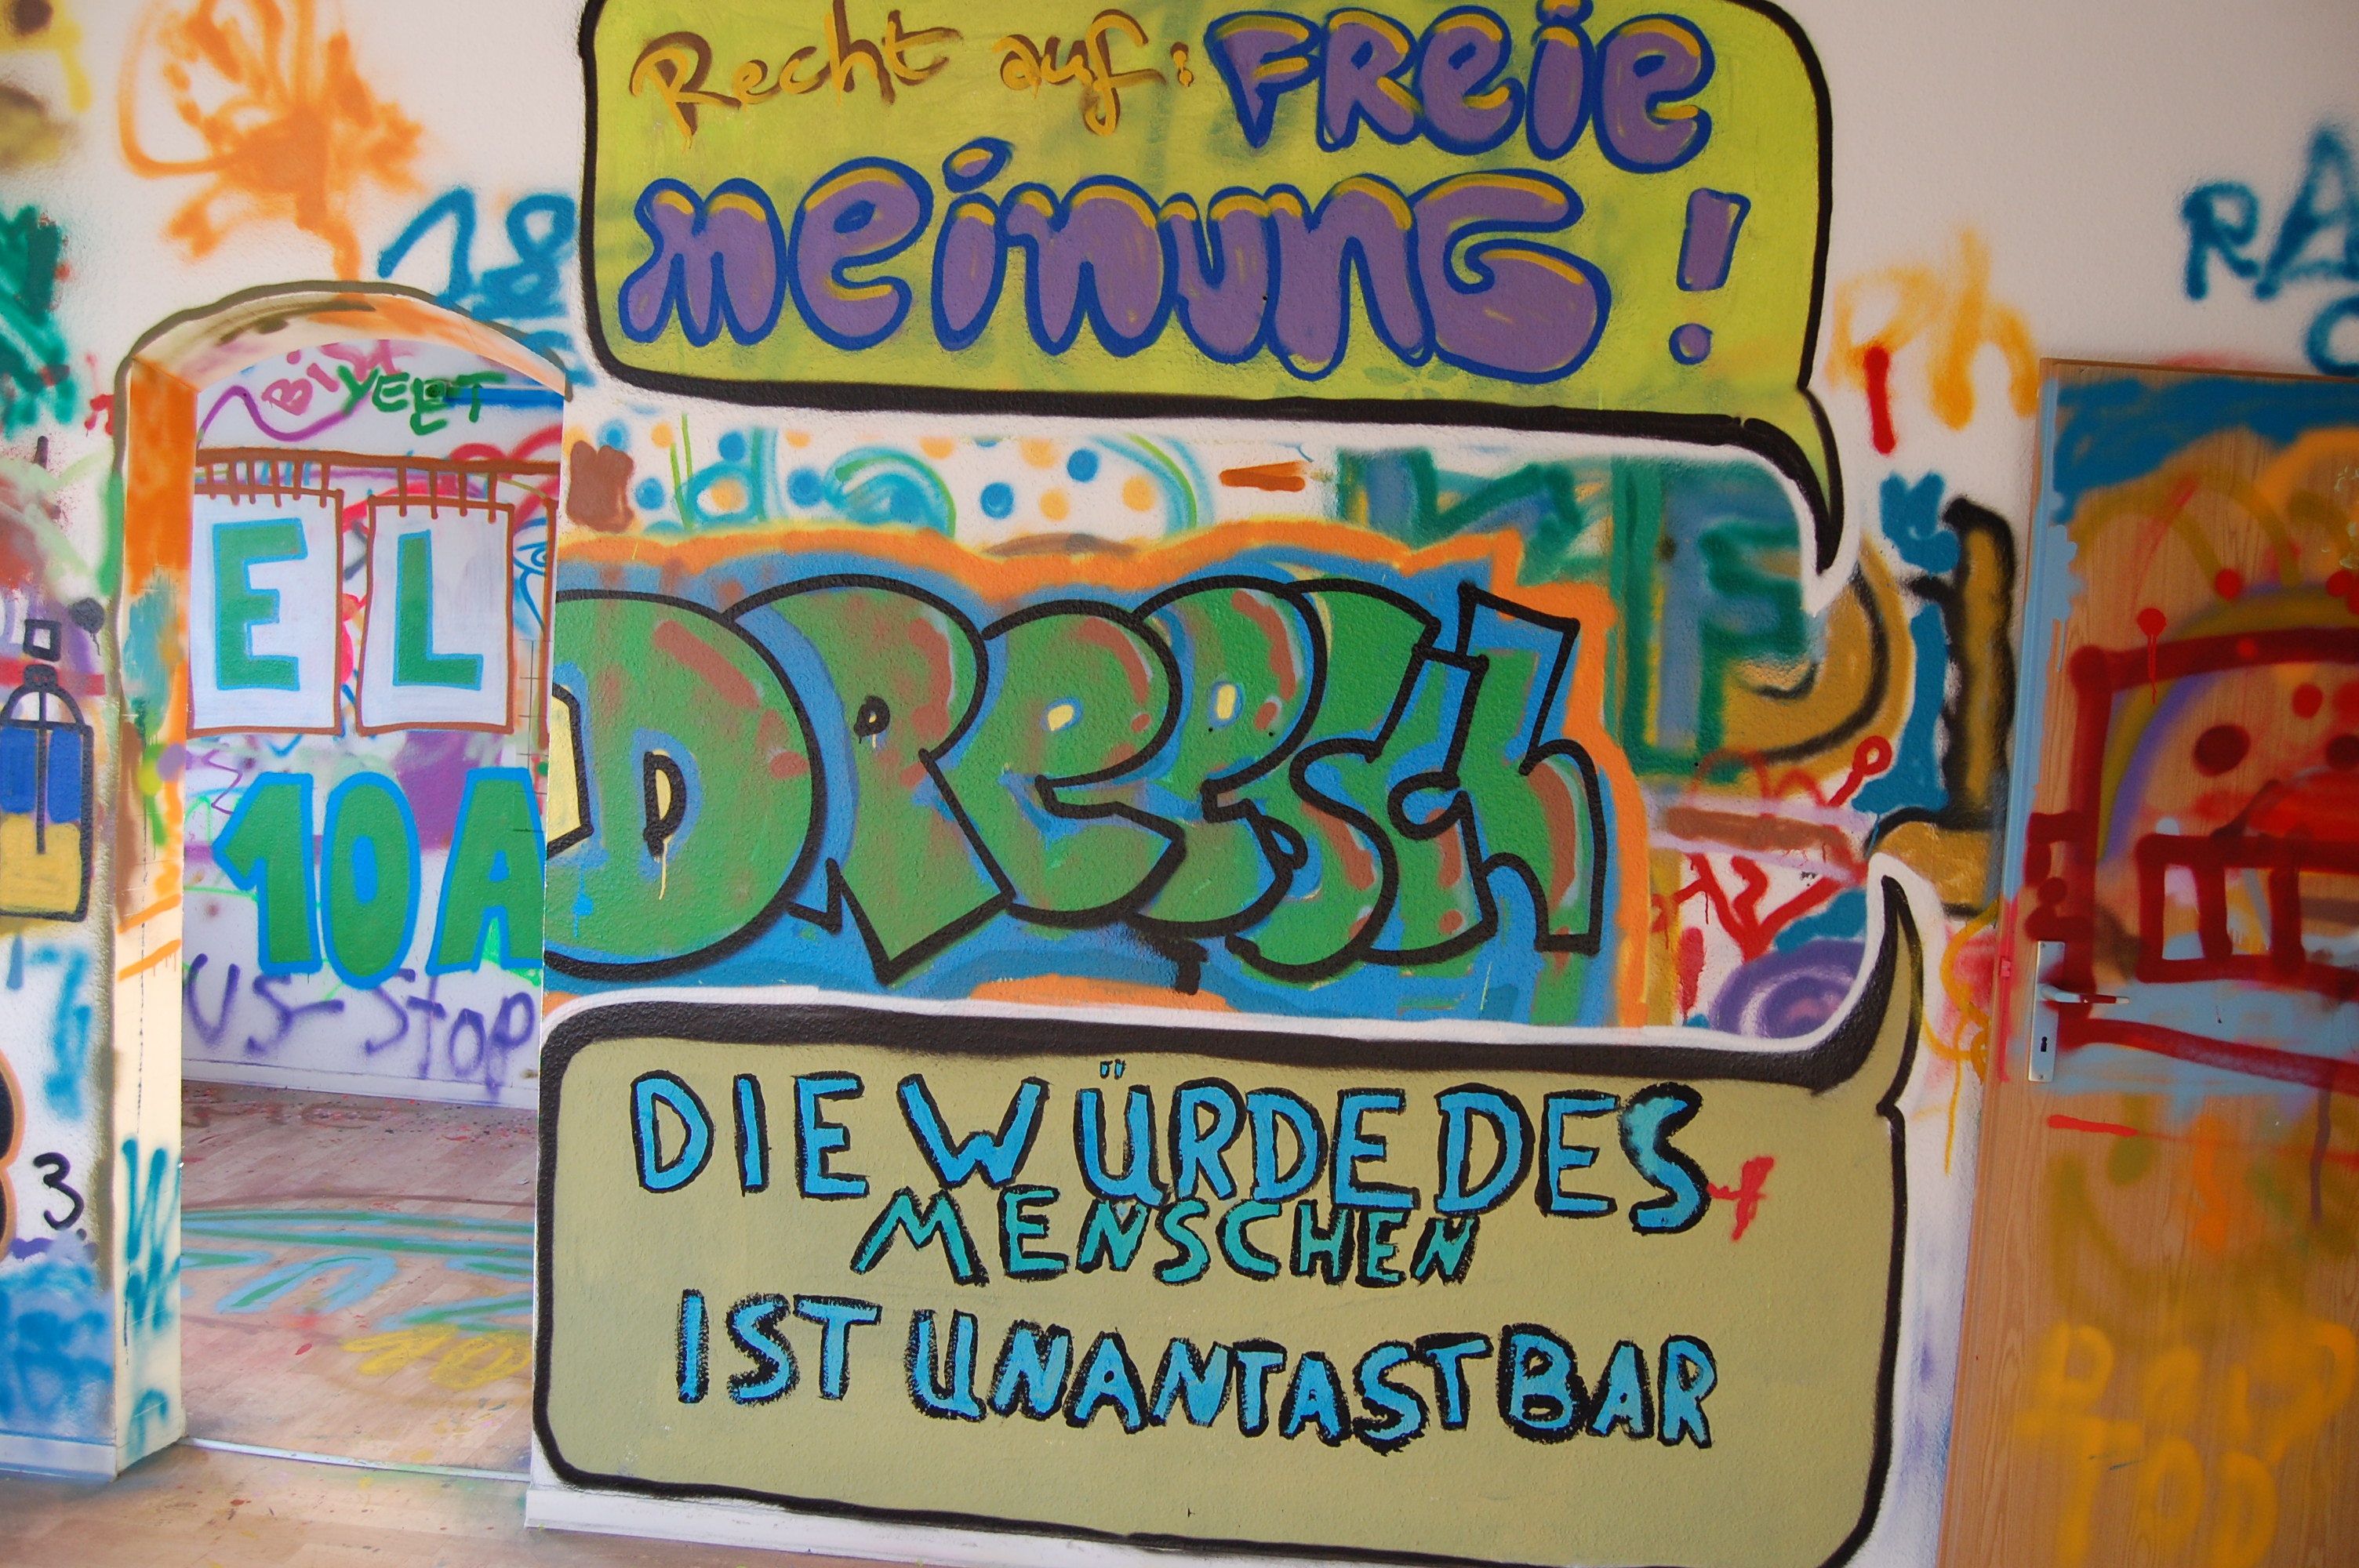 Recht auf: FREIE
MEINUNG!
18
RA
Ph
BIST
YEET
E L
10A
US-STOP
DREESCH
3.
DIE WÜRDE DES
MENSCHEN
IST UNANTASTBAR
TOD